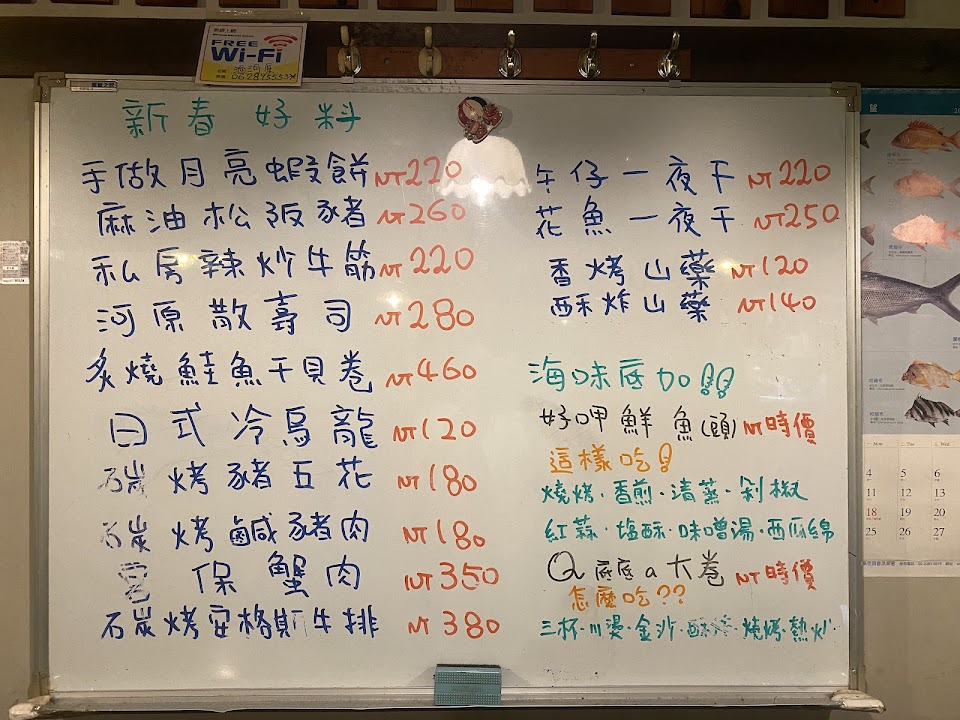 FREE
Wi-Fi
新春好料
手做月亮蝦餅 NT220
麻油松阪豬 NT260
私房辣炒牛筋 NT220
河原散壽司 NT280
炙燒鮭魚干貝卷 NT460
日式冷烏龍 NT120
石炭烤豬五花 NT180
石炭烤鹹豬肉 NT180
保蟹肉 NT350
石炭烤安格斯牛排 NT380
午仔一夜干 NT220
花魚一夜干 NT250
香烤山藥 NT120
酥炸山藥 NT140
海味底加!!
好呷鮮魚(頭) NT時價
這樣吃!
燒烤·香煎·清蒸·剁椒
紅蒜·塩酥·味噌湯·西瓜綿
Q底底a大卷 NT時價
怎麼吃??
三杯·川燙·金沙·酥炸·燒烤·熱炒
4 5 6
11 12 13
18 19 20
25 26 27